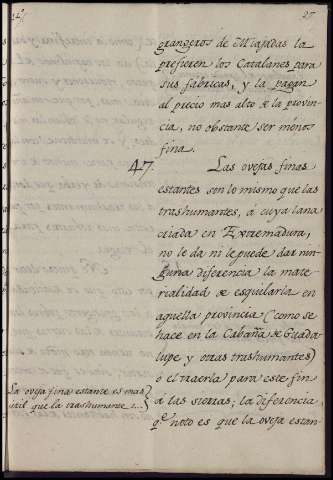 27
grangeros de Miajadas la
prefieren los Catalanes para
sus fábricas, y la pagan
al precio mas alto de la provin-
cia, no obstante ser ménos
fina.
47. Las ovejas finas
estantes son lo mismo que las
trashumantes, á cuya lana
criada en Extremadura,
no le da ni le puede dar nin-
guna diferencia la mate-
rialidad de esquilarla en
aquella provincia (como se
hace en la Cabaña de Guada-
lupe y otras trashumantes)
ó el traerla para este fin
a las sierras; la diferencia
qe. noto es que la oveja estan-
La oveja fina estante es mas
util que la trashumante